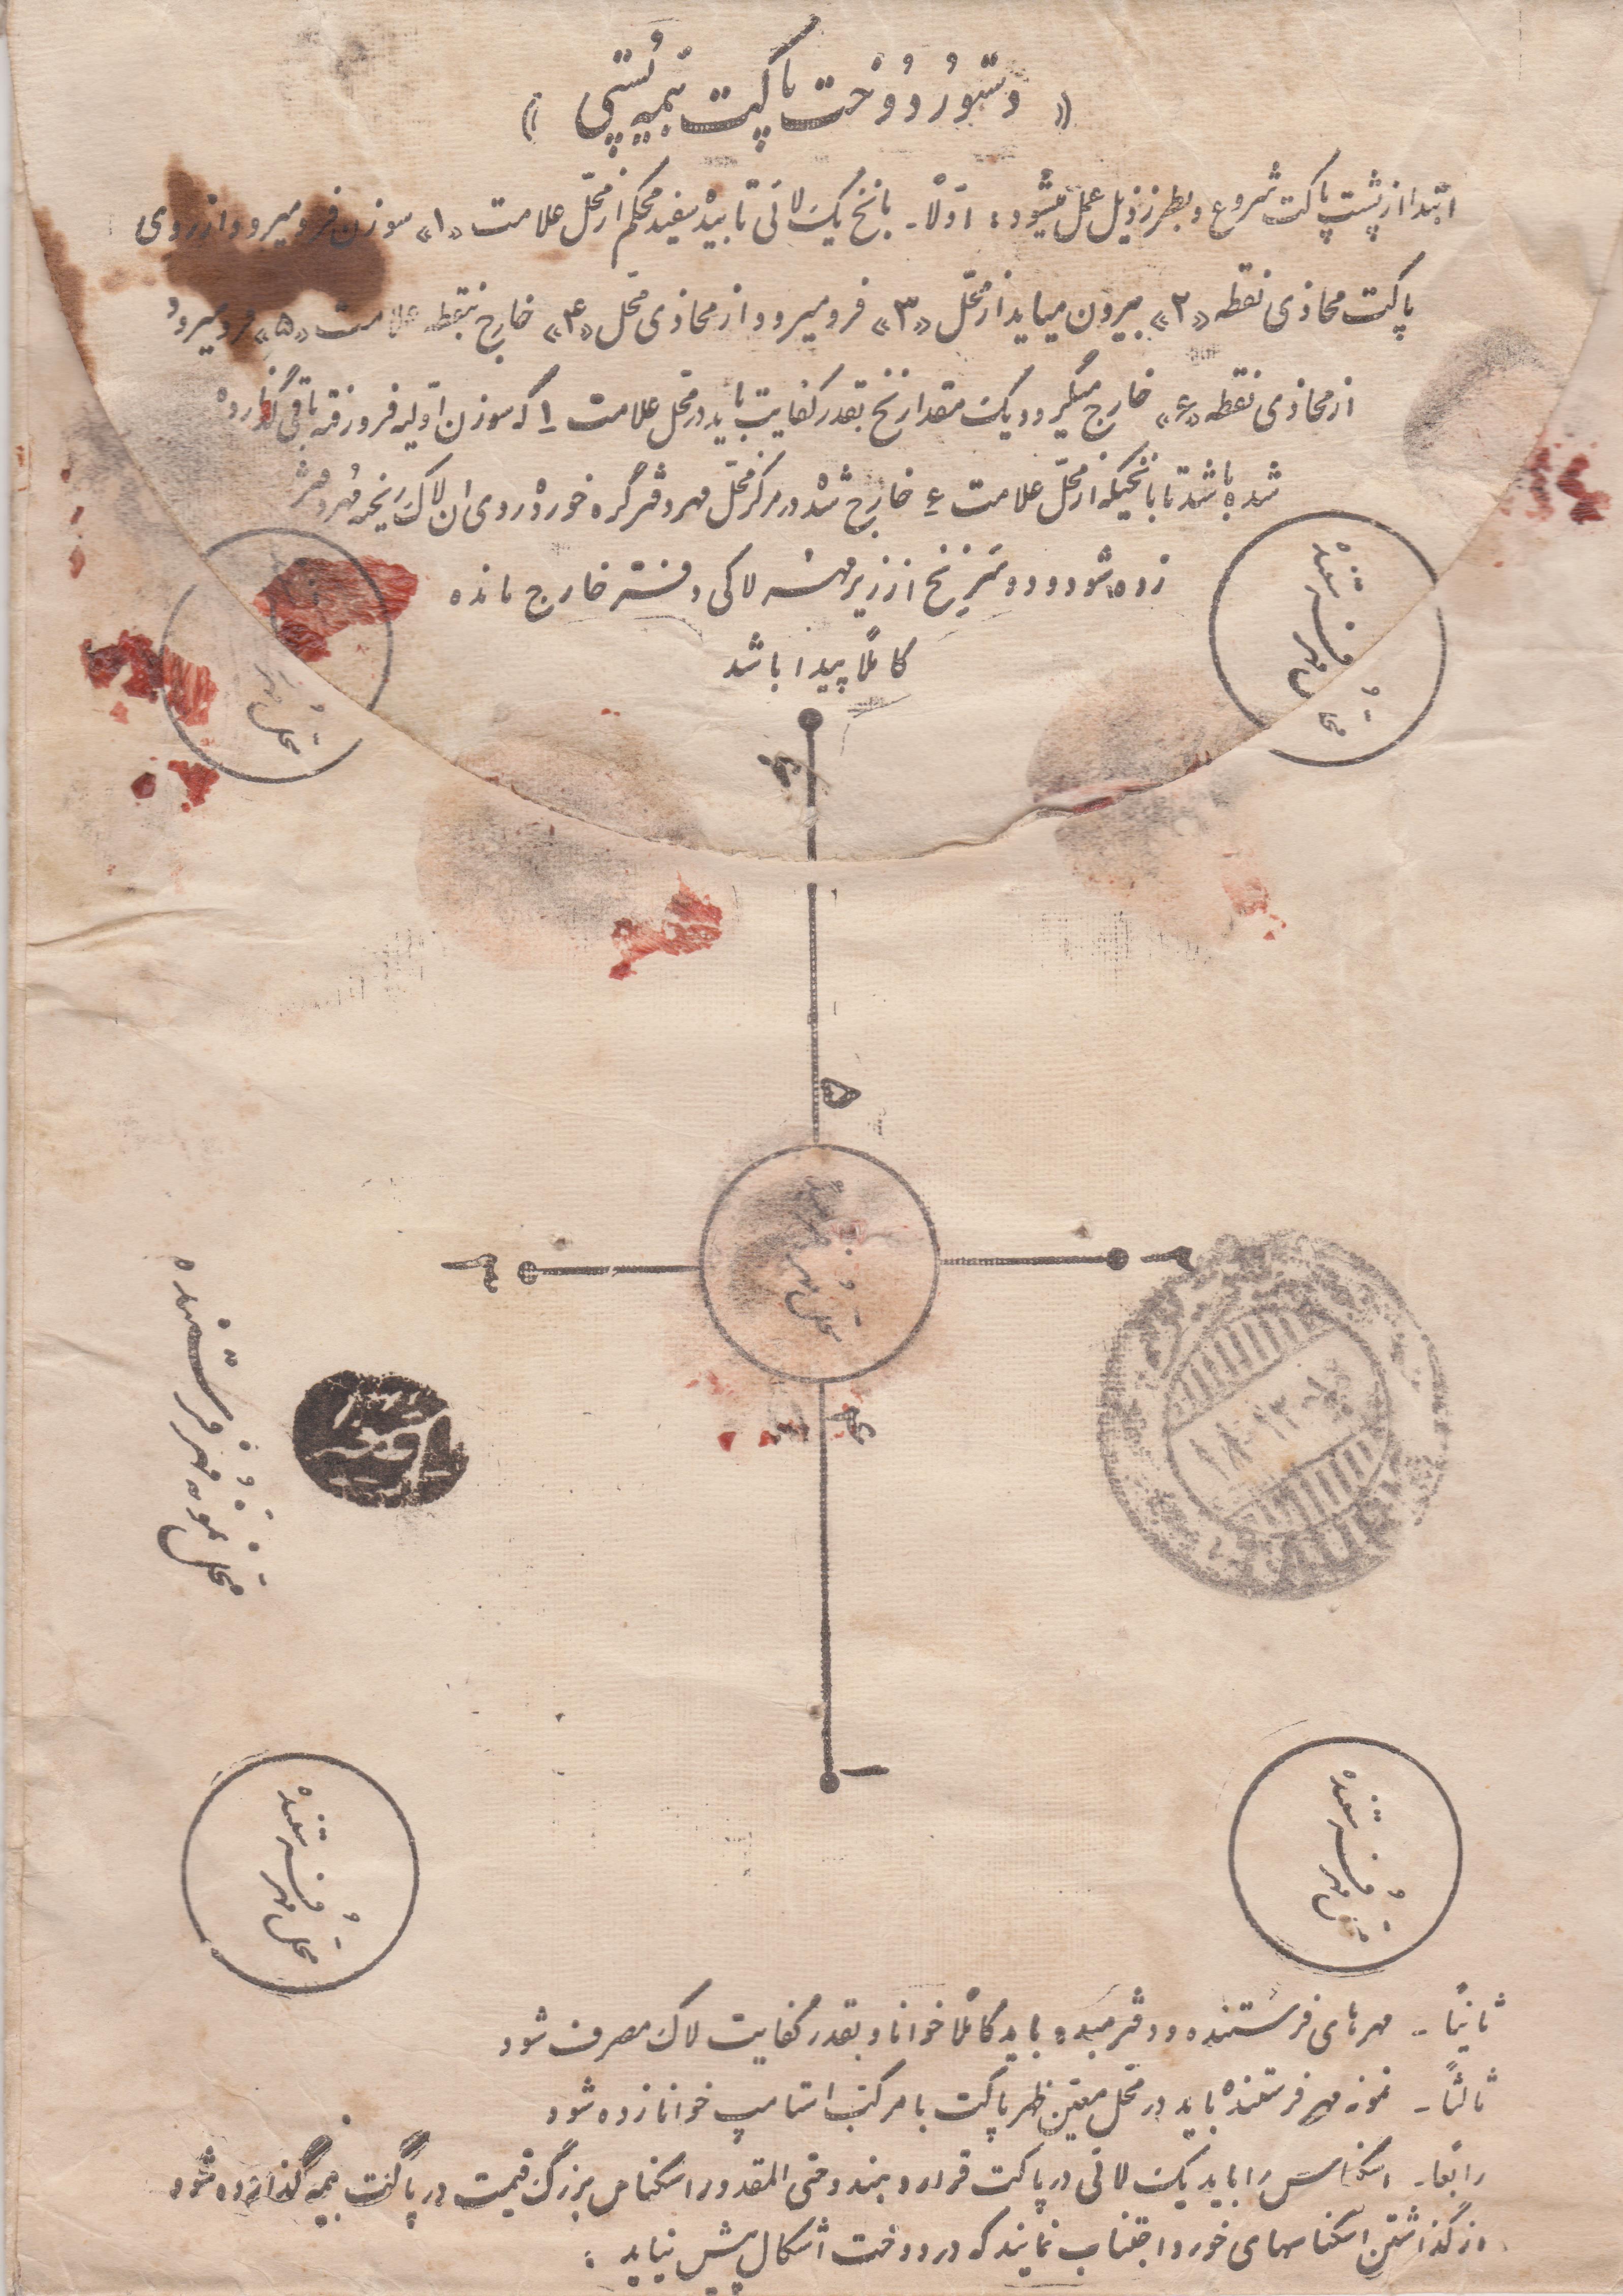 « دستور دوخت پاکت بیمه پستی »
ابتدا از پشت پاکت شروع و بطرز ذیل عمل میشود : اولاً - با نخ یک لائی تابیده سفید محکم از محل علامت «۱» سوزن فرو میرود از روی
پاکت محاذی نقطه «۲» بیرون میاید از محل «۳» فرو میرود از محاذی محل «۴» خارج بنقطه علامت «۵» فرو میرود
از محاذی نقطه «۶» خارج میگیرد و یک مقدار نخ بقدر کفایت باید در محل علامت ۱ که سوزن اولیه فرو رفته باقی گذارده
شده باشد تا با نخیکه از محل علامت ۶ خارج شده در مرکز محل مهر دفتر گره خورده روی ان لاک ریخته مهر دفتر
زده شود و دو سر نخ از زیر مهر لاکی دفتر خارج مانده
کاملاً پیدا باشد
محل مهر فرستنده
محل مهر
۶
۵
محل مهر
۳
۲
۴
۱
محل نمونه مهر فرستنده
۱۸-۱۲
محل مهر فرستنده
محل مهر فرستنده
ثانیاً - مهرهای فرستنده و دفتر مبدء باید کاملاً خوانا و بقدر کفایت لاک مصرف شود
ثالثاً - نمونه مهر فرستنده باید در محل معین ظهر پاکت با مرکب استامپ خوانا زده شود
رابعاً - اسکناس را باید یک لائی در پاکت قرار دهند و حتی المقدور اسکناس بزرگ قیمت در پاکت بیمه گذارده شود
از گذاشتن اسکناسهای خورد اجتناب نمایند که در دوخت اشکال پیش نیاید :